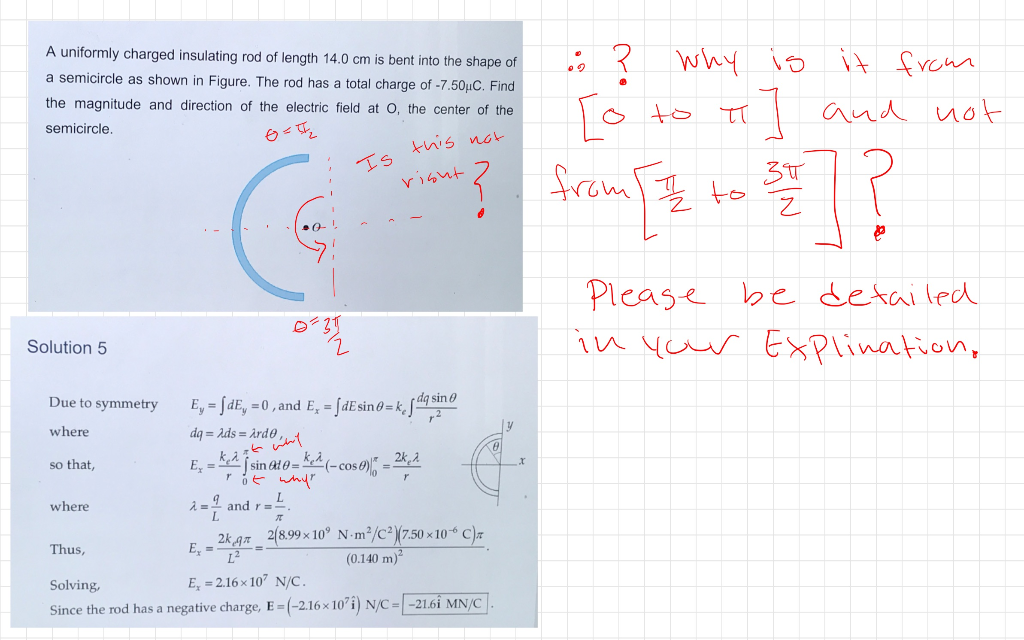 A uniformly charged insulating rod of length 14.0 cm is bent into the shape of
a semicircle as shown in Figure. The rod has a total charge of -7.50μC. Find
the magnitude and direction of the electric field at O, the center of the
semicircle.
θ = π/2
Is this not
right?
O
θ = 3π/2
∴ ? Why is it from
[0 to π] and not
from [π/2 to 3π/2]?
Please be detailed
in your Explination.
Solution 5
Due to symmetry E_y = ∫dE_y = 0, and E_x = ∫dE sin θ = k_e ∫ dq sin θ / r²
where dq = λds = λrdθ,
← why
so that, E_x = k_eλ/r ∫₀^π sin θdθ = k_eλ/r (−cos θ)|₀^π = 2k_eλ/r
← why
y
θ
x
where λ = q/L and r = L/π.
Thus, E_x = 2k_eqπ/L² = 2(8.99×10⁹ N·m²/C²)(7.50×10⁻⁶ C)π/(0.140 m)².
Solving, E_x = 2.16×10⁷ N/C.
Since the rod has a negative charge, E = (−2.16×10⁷ î) N/C = −21.6î MN/C.